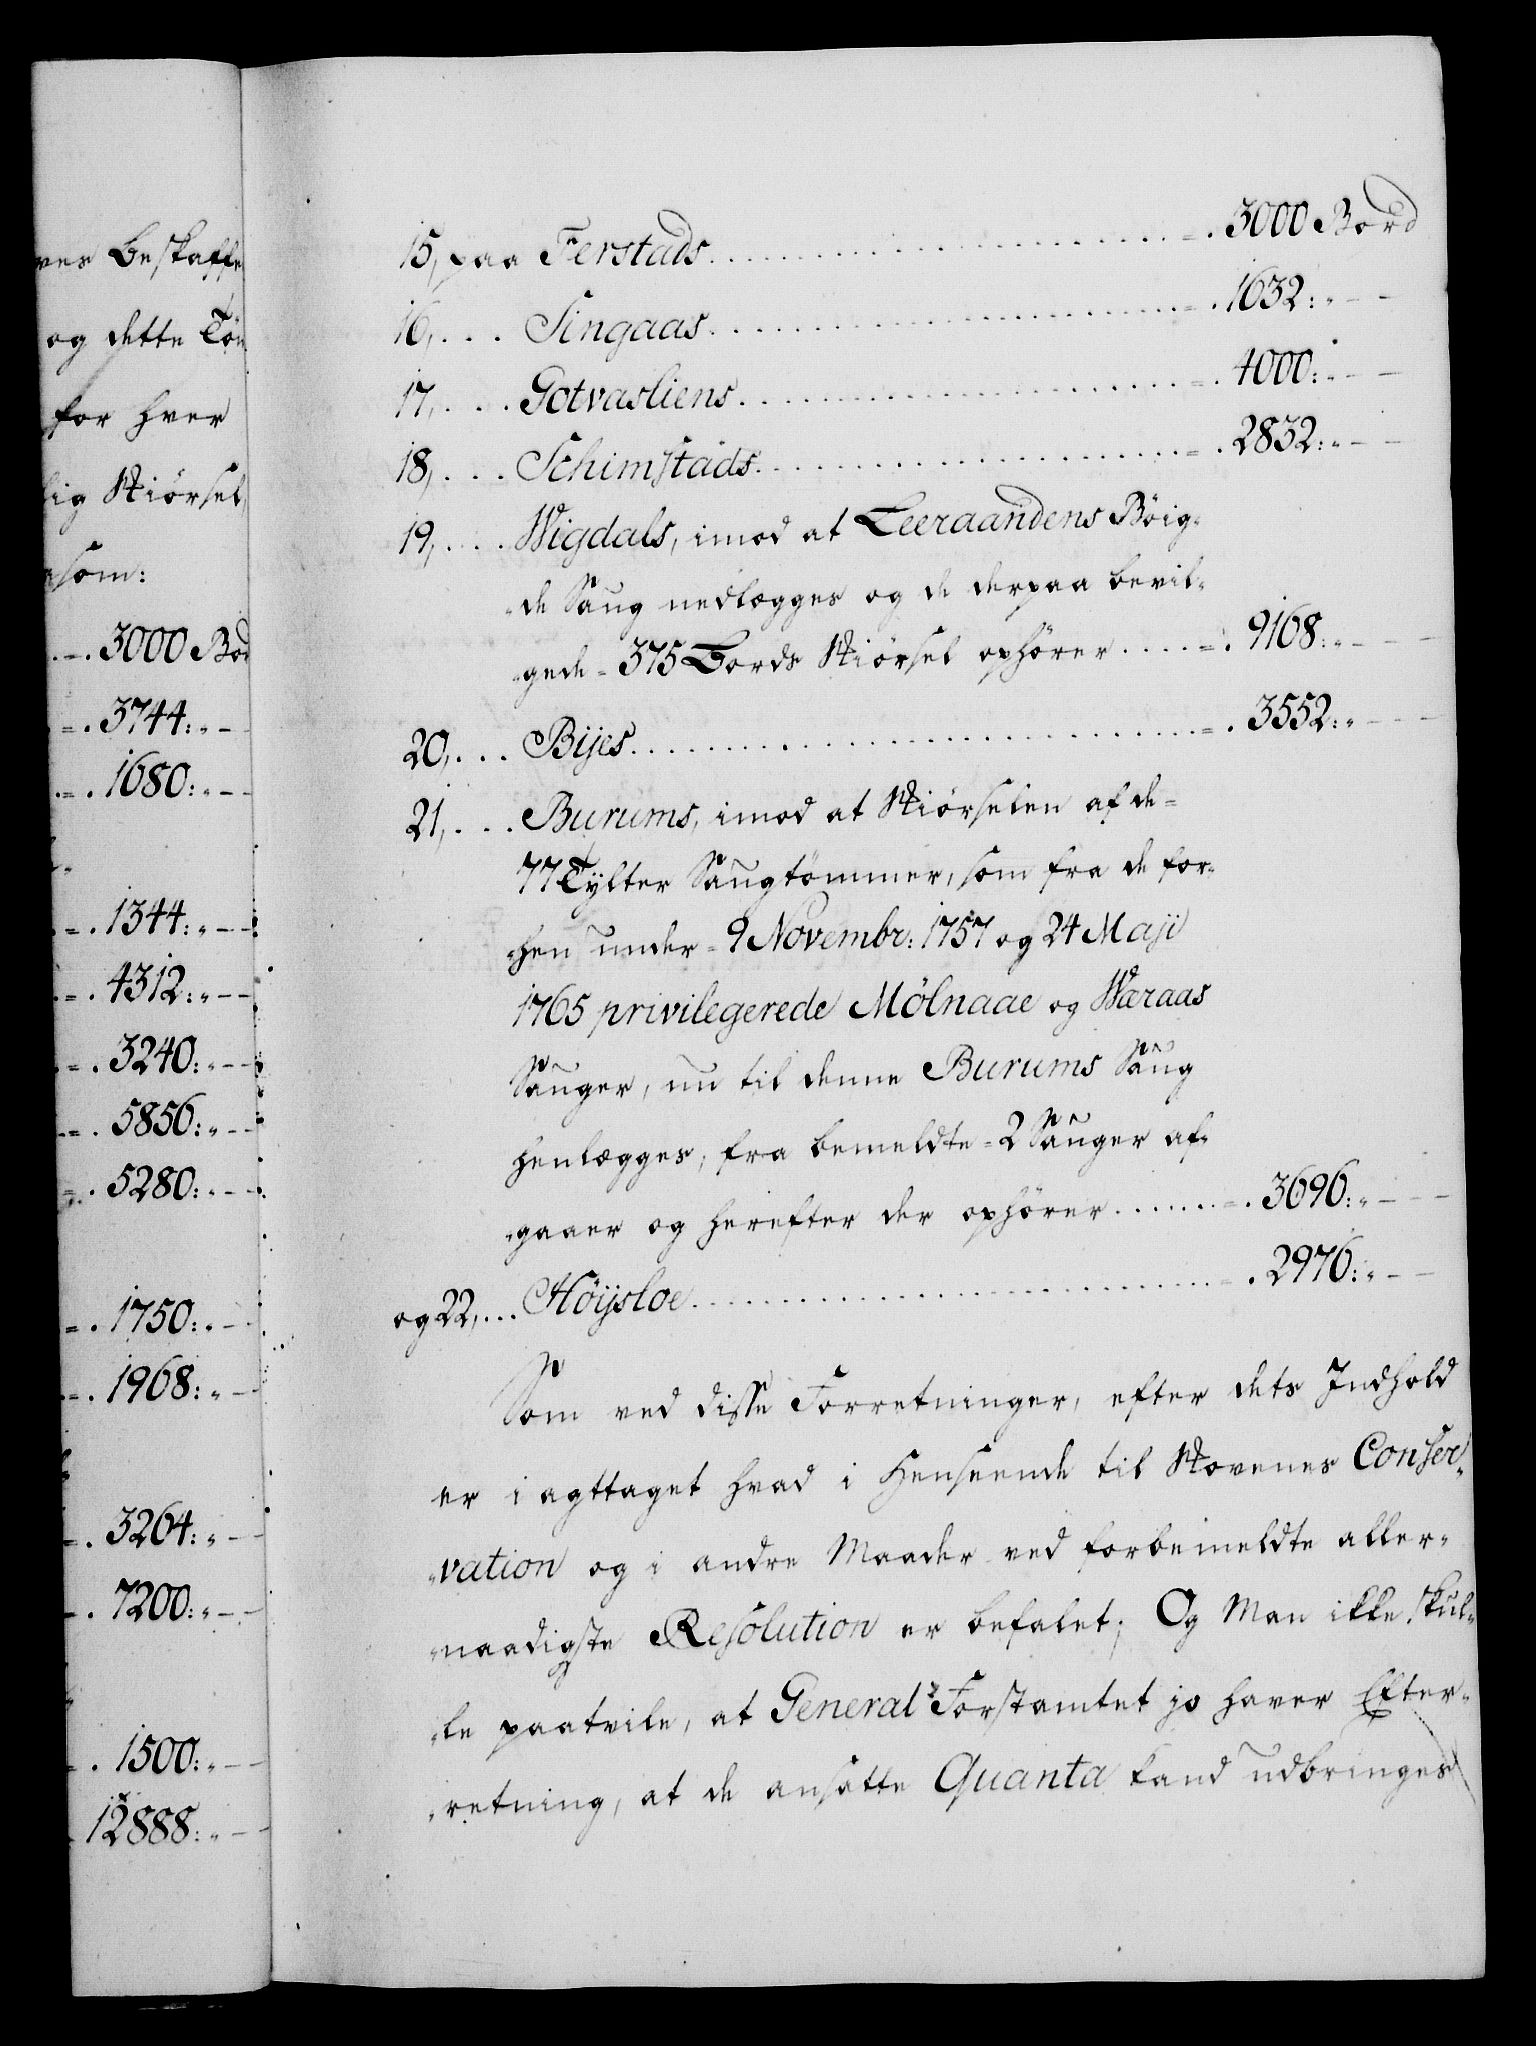 ves Beskaffe
og dette Töm
for hver
lig Skiørsel,
som:
3000 Bor
3744:
1680:
1344:
4312:
3240:
5856:
5280:
1750:
1968:
3264:
7200:
1500:
12888:
15, paa Ferstads . . . . . = . 3000 Bord
16, . . . Singaas . . . . . = . 1632: " - -
17, . . . Gotvasliens . . . . . = . 4000: " - -
18, . . . Schimstads . . . . . = . 2832: " - -
19, . . . Wigdals, imod at Leeraandens Böig-
de Saug nedlægges og de derpaa bevil-
gede = 375 Bords Skiørsel ophører . . . . = . 9168: " - -
20, . . . Bijes . . . . . = . 3552: " - -
21, . . . Burums, imod at Skiørselen af de =
77 Tylter Saugtömmer, som fra de for-
hen under = 9 Novembr: 1757 og 24 Maji
1765 privilegerede Mölnaae og Waraas
Sauger, nu til denne Burums Saug
henlægges, fra bemeldte = 2 Sauger af-
gaaer og herefter der ophører . . . . = . 3696: " - -
og 22, . . . Höijsloe . . . . . = . 2976: " - -
Som ved disse Forretninger, efter dets Indhold
er iagttaget hvad i Henseende til Skovenes Conser-
vation og i andre Maader ved forbemeldte aller-
naadigste Resolution er befalet; Og Man ikke skul-
le paatvile, at General Forstamtet jo haver Efter-
retning, at de ansatte Quanta kand udbringes